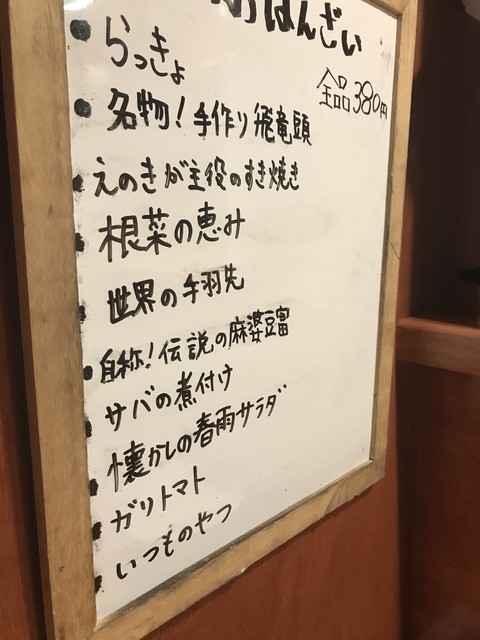 おばんざい
全品380円
らっきょ
名物!手作り飛竜頭
えのきが主役のすき焼き
根菜の恵み
世界の手羽先
自称!伝説の麻婆豆富
サバの煮付け
懐かしの春雨サラダ
ガリトマト
いつものやつ